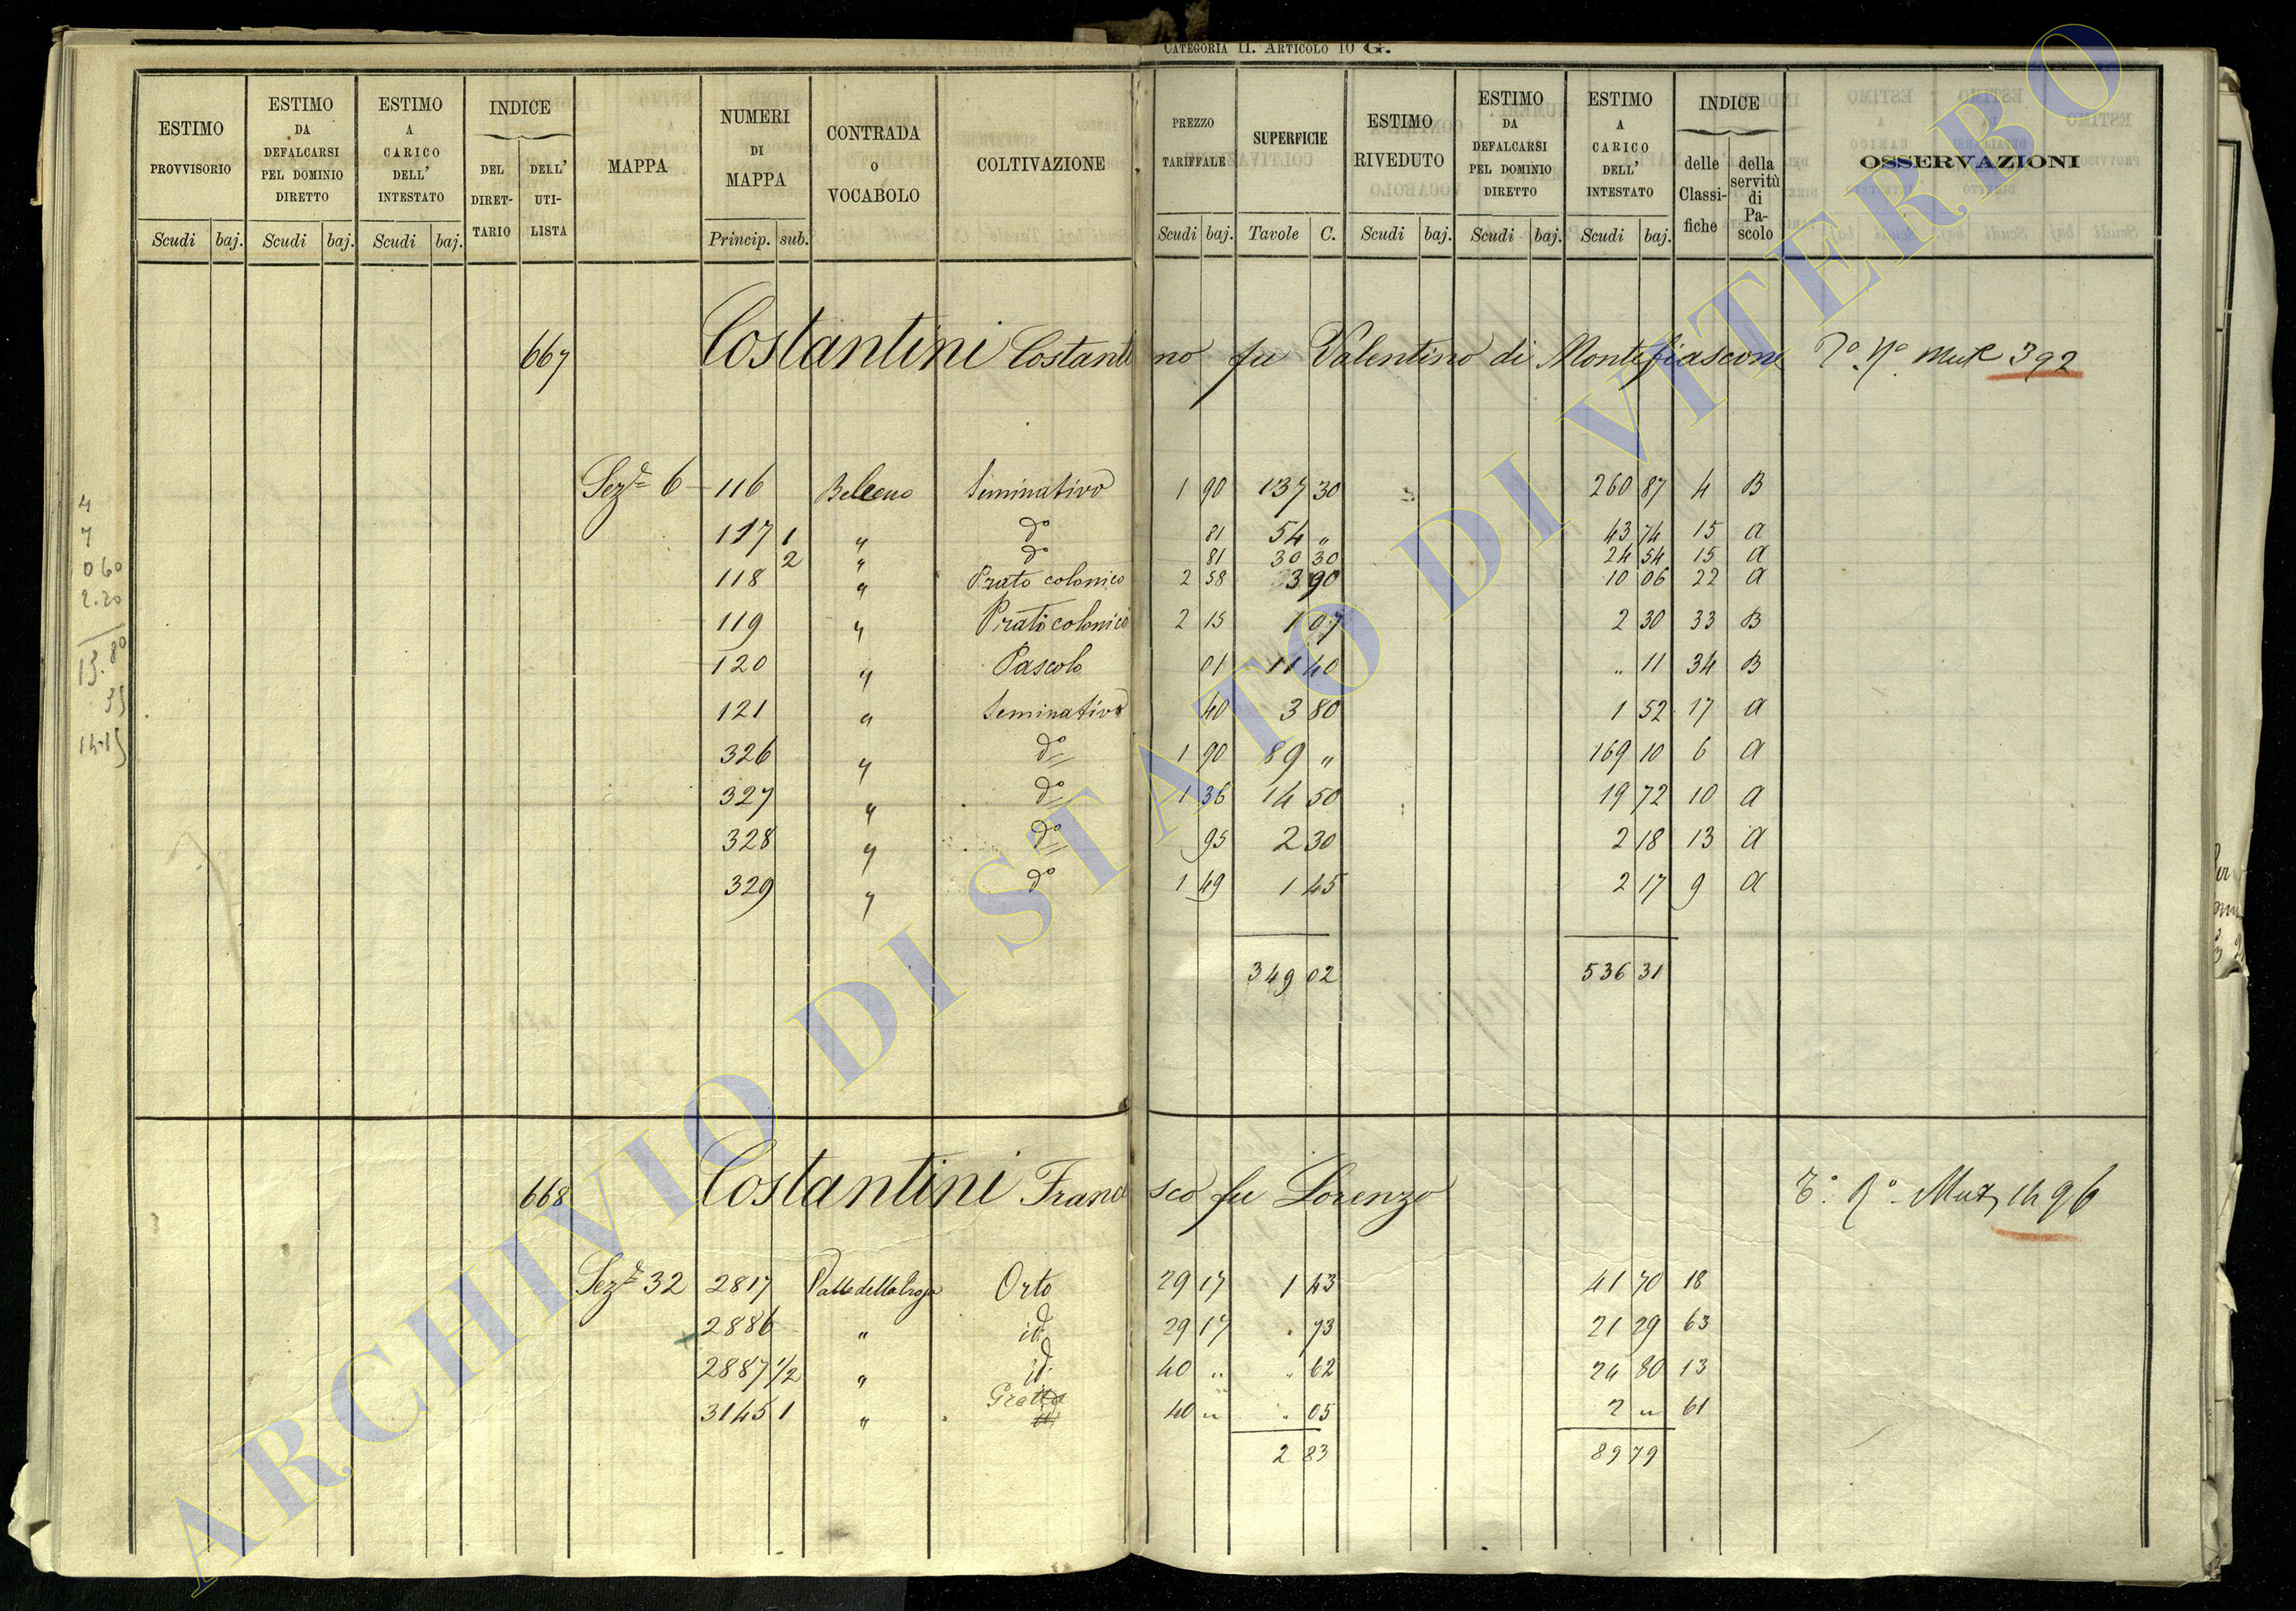 CATEGORIA II. ARTICOLO 10 G.
ESTIMO PROVVISORIO Scudi baj.
ESTIMO DA DEFALCARSI PEL DOMINIO DIRETTO Scudi baj.
ESTIMO A CARICO DELL' INTESTATO Scudi baj.
INDICE DEL DIRETTARIO DELL' UTILISTA
MAPPA
NUMERI DI MAPPA Princip. sub.
CONTRADA o VOCABOLO
COLTIVAZIONE
PREZZO TARIFFALE Scudi baj.
SUPERFICIE Tavole C.
ESTIMO RIVEDUTO Scudi baj.
ESTIMO DA DEFALCARSI PEL DOMINIO DIRETTO Scudi baj.
ESTIMO A CARICO DELL' INTESTATO Scudi baj.
INDICE delle Classifiche della servitù di Pascolo
OSSERVAZIONI
667 Costantini Costantino fu Valentino di Montefiascone 392
Sez.e 6 116 Seminativo 1 90 137 30 260 87 4 B
117 1 " do 81 54 " 43 74 15 a
2 " do 81 30 30 24 54 15 a
118 " Prato colonico 2 58 3 90 10 06 22 a
119 " Prato colonico 2 15 1 07 2 30 33 B
120 " Pascolo 01 11 40 " 11 34 B
121 " Seminativo 40 3 80 1 52 17 a
326 " do 1 90 89 " 169 10 6 a
327 " do 1 36 14 50 19 72 10 a
328 " do 95 2 30 2 18 13 a
329 " do 1 49 1 45 2 17 9 a
349 02 536 31
4
7
0 60
2.20
13.80
35
14.15
668 Costantini Francesco fu Lorenzo 1496
Sez.e 32 2817 Orto 29 17 1 43 41 70 18
2886 " id. 29 17 . 73 21 29 63
2887 1/2 " id. 40 " " 62 24 80 13
3145 1 " Grotta 40 " . 05 2 " 61
2 83 89 79
ARCHIVIO DI STATO DI VITERBO